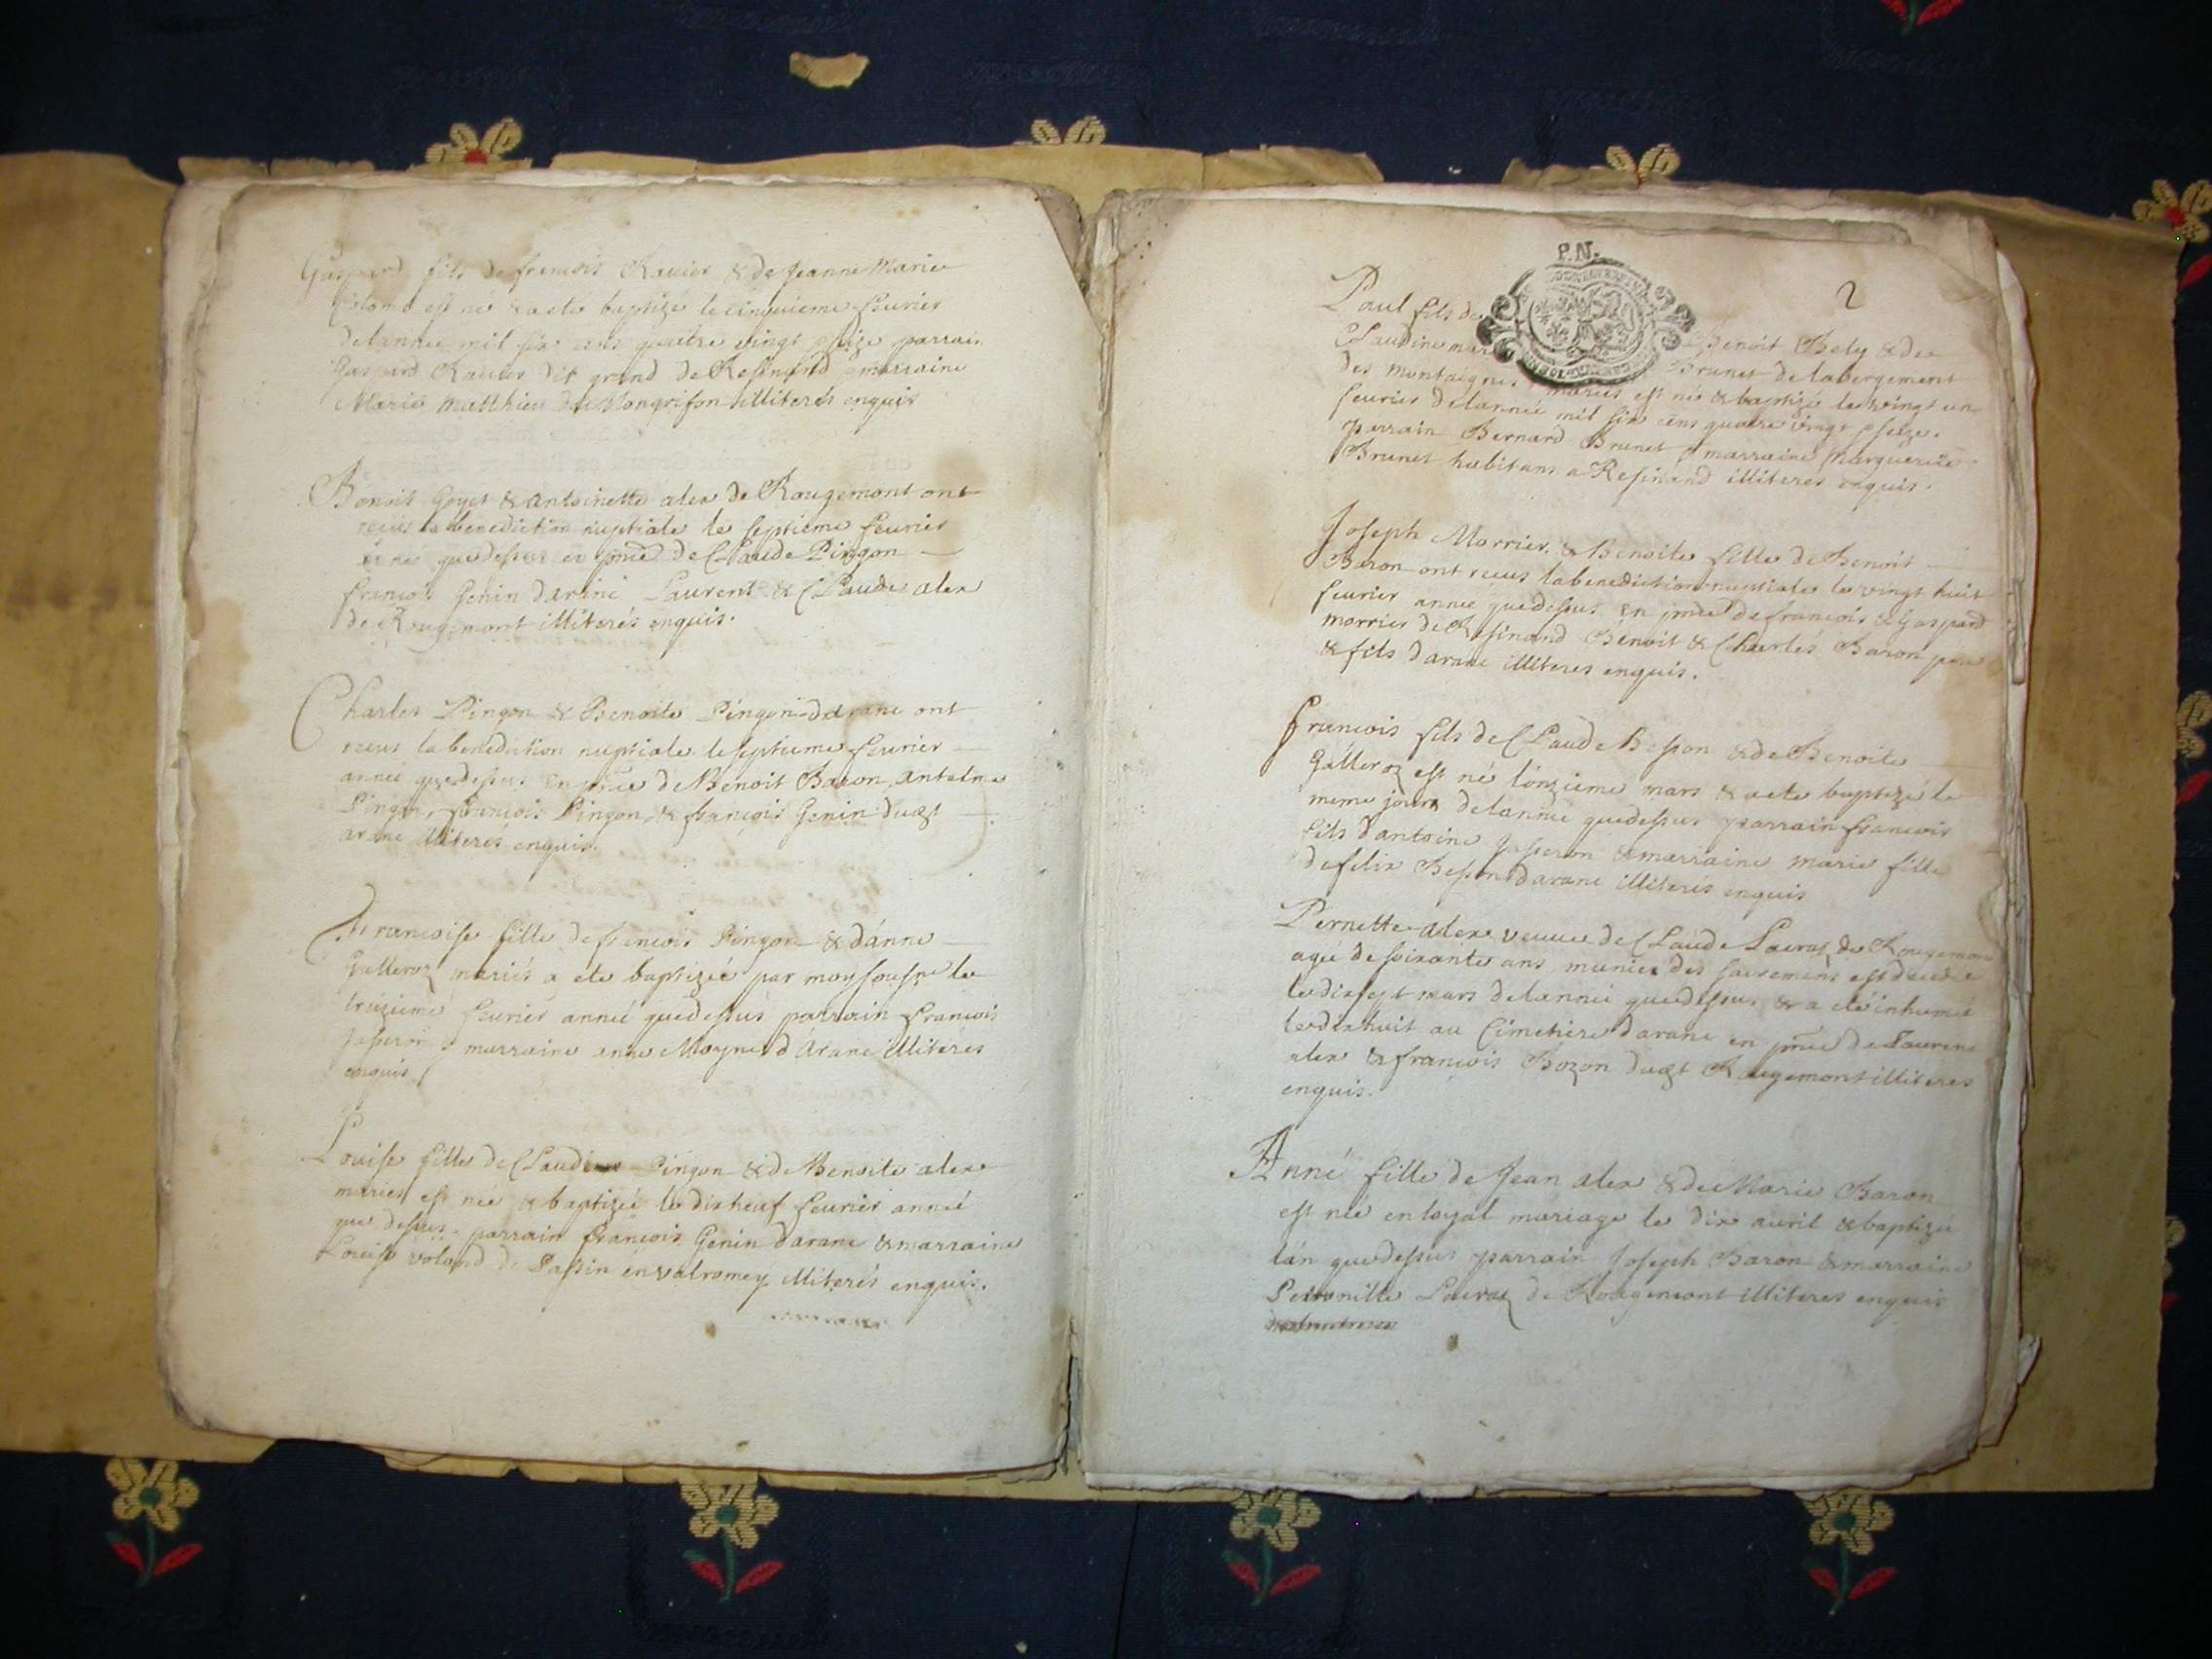 Gaspard fils de francois Ravier & de Jeanne Marie
Colomb est ne & a ete baptizé le cinquieme feurier
de lannee mil six cens quatre vingt seize parrain
Gaspard Ravier dit grand de Resinand & marraine
Marie Matthieu de Mongrifon illiterés enquis
Benoit Goyet & antoinette alex de Rougemont ont
recus la benediction nuptiale le septieme feurier
année que dessus en pnce de Claude Pingon
francois Genin darane Laurent & Claude alex
de Rougemont illiterés enquis.
Charles Pingon & Benoite Pingon darane ont
recus la benediction nuptiale le septieme feurier
année que dessus en pnce de Benoit Baron, antelme
Pingon, francois Pingon, & francois Genin dudt
arane illiterés enquis.
Francoise fille de francois Pingon & danne
Galleroz mariés a ete baptizée par moy soussné le
treizieme feurier année que dessus parrain francois
Jasseron marraine anne Moyne d Arane illiteres
enquis
Louise fille de Claude Pingon & de Benoite alex
mariés est née & baptizée le dix neuf feurier année
que dessus. parrain francois Genin darane & marraine
Louise voland de Passin en valromey illiterés enquis.
P.N.
2
Paul fils de Benoit Bely & de
Claudine Brunet de labergement
des montaignes mariés est né & baptizé le vingt un
feurier de lannée mil six cens quatre vingt seize.
parrain Bernard Brunet & marraine Marguerite
Brunet habitans a Resinand illiteres enquis.
Joseph Morrier & Benoite fille de Benoit
Baron ont recus la benediction nuptiale le vingt huit
feurier année que dessus en pnce de francois & Gaspard
morrier de Resinand Benoit & Charles Baron pere
& fils darane illiteres enquis.
francois fils de Claude Besson & de Benoite
Galleroz est né lonzieme mars & a ete baptizé le
meme jour de lannée que dessus parrain francois
fils dantoine Jasseron & marraine marie fille
de felix Besson darane illiterés enquis
Pernette alex veuue de Claude Savraz de Rougemont
agée de soixante ans munie des sacremens est decedée
le dixsept mars de lannée que dessus & a eté inhumée
le dix huit au Cimetiere darane en pnce de Laurent
alex & francois Bozon dudt Rougemont illiteres
enquis.
Anne fille de Jean alex & de Marie Baron
est née en loyal mariage le dix auril & baptizée
lan que dessus parrain Joseph Baron & marraine
Petronille de Rougemont illiteres enquis